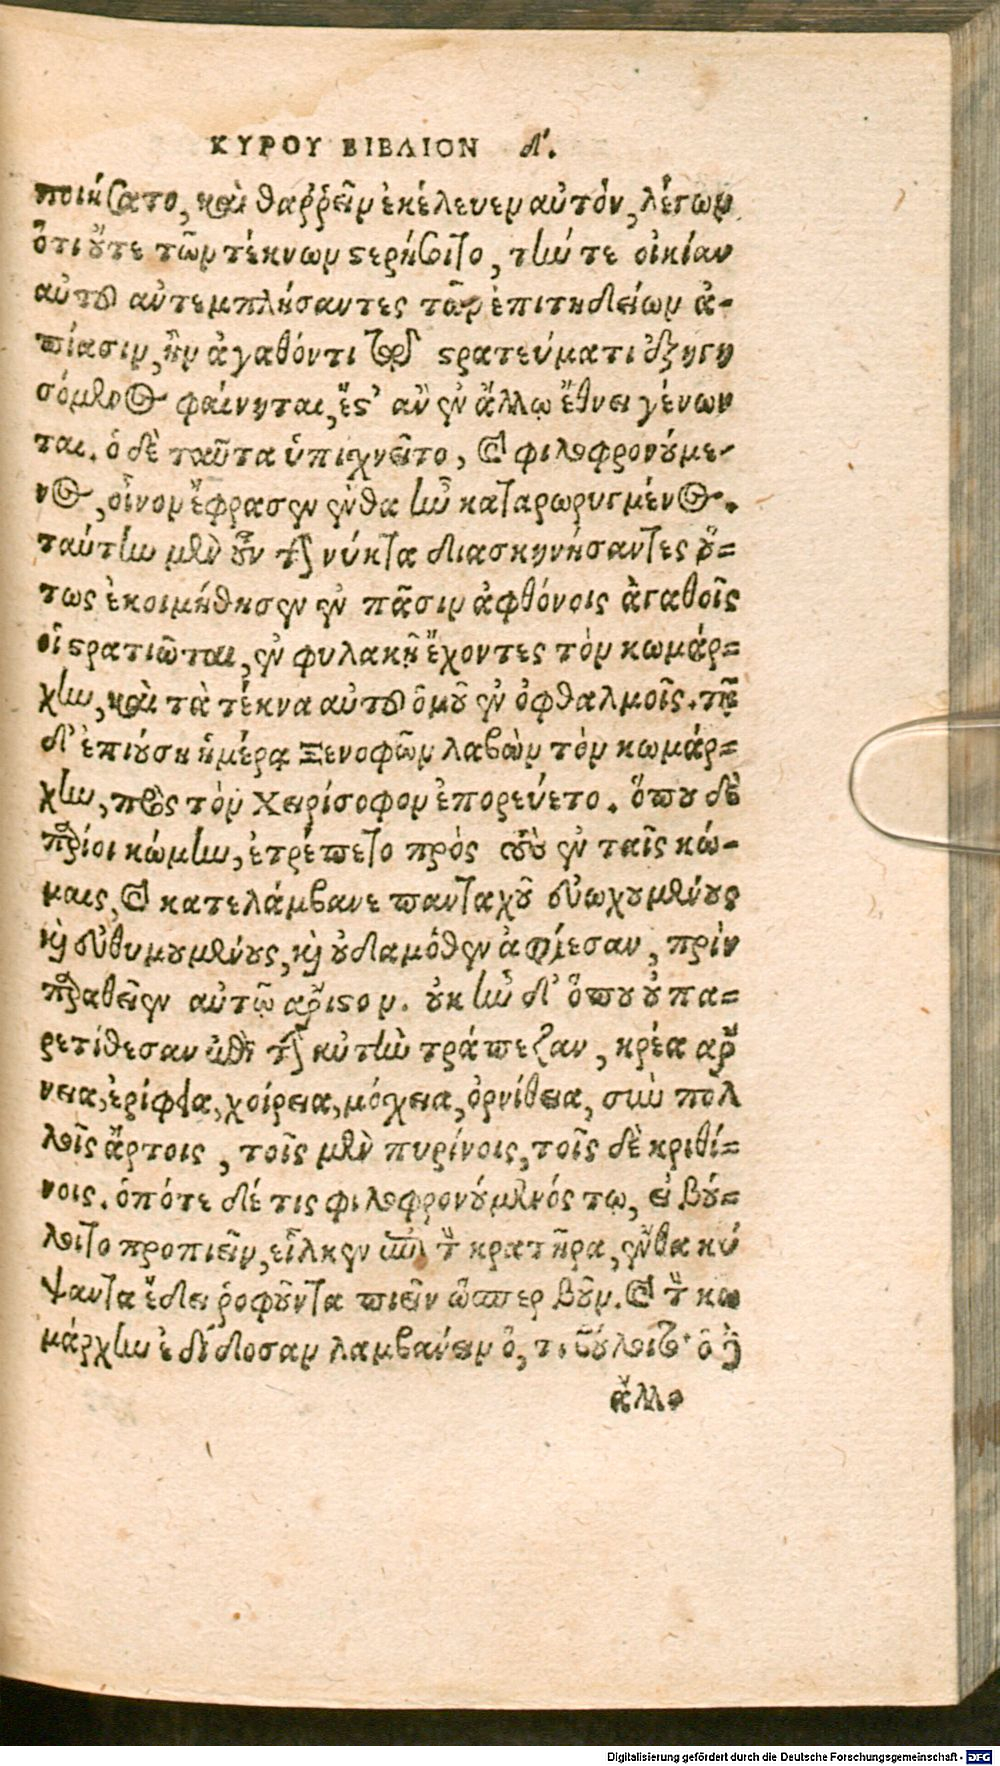 ΚΥΡΟΥ ΒΙΒΛΙΟΝ δ'.
ποιήσατο, καὶ θαῤῥεῖν ἐκέλευεν αὐτόν, λέγων
ὅτι οὔτε τῶν τέκνων στερήσοιτο, τήν τε οἰκίαν
αὐτοῦ ἀντεμπλήσαντες τῶν ἐπιτηδείων ἀ-
πίασιν, ἢν ἀγαθόν τι τῷ στρατεύματι ἐξηγη
σόμενος φαίνηται, ἔστ' ἂν ἐν ἄλλῳ ἔθνει γένων
ται. ὁ δὲ ταῦτα ὑπισχνεῖτο, καὶ φιλοφρονούμε-
νος, οἶνον ἔφρασεν ἔνθα ἦν κατορωρυγμένος.
ταύτην μὲν οὖν τὴν νύκτα διασκηνήσαντες οὕ=
τως ἐκοιμήθησαν ἐν πᾶσιν ἀφθόνοις ἀγαθοῖς
οἱ στρατιῶται, ἐν φυλακῇ ἔχοντες τὸν κωμάρ=
χην, καὶ τὰ τέκνα αὐτοῦ ὁμοῦ ἐν ὀφθαλμοῖς. τῇ
δ' ἐπιούσῃ ἡμέρᾳ Ξενοφῶν λαβὼν τὸν κωμάρ=
χην, πρὸς τὸν Χειρίσοφον ἐπορεύετο. ὅπου δὲ
παρίοι κώμην, ἐτρέπετο πρὸς τοὺς ἐν ταῖς κώ-
μαις, καὶ κατελάμβανε πανταχοῦ εὐωχουμένους
καὶ εὐθυμουμένους, καὶ οὐδαμόθεν ἀφίεσαν, πρὶν
παραθεῖναι αὐτῷ ἄριστον. οὐκ ἦν δ' ὅπου οὐ πα=
ρετίθεσαν ἐπὶ τὴν αὐτὴν τράπεζαν, κρέα ἄρ
νεια, ἐρίφεια, χοίρεια, μόσχεια, ὀρνίθεια, σὺν πολ
λοῖς ἄρτοις, τοῖς μὲν πυρίνοις, τοῖς δὲ κριθί=
νοις. ὁπότε δέ τις φιλοφρονούμενός τῳ, εἰ βού=
λοιτο προπιεῖν, εἷλκεν ἐπὶ τὸν κρατῆρα, ἔνθα κύ
ψαντα ἔδει ῥοφοῦντα πιεῖν ὥσπερ βοῦν. καὶ τὸν κω
μάρχην ἐδίδοσαν λαμβάνειν ὅ, τι βούλοιτο· ὁ δὲ
ἄλλο
Digitalisierung gefördert durch die Deutsche Forschungsgemeinschaft - DFG